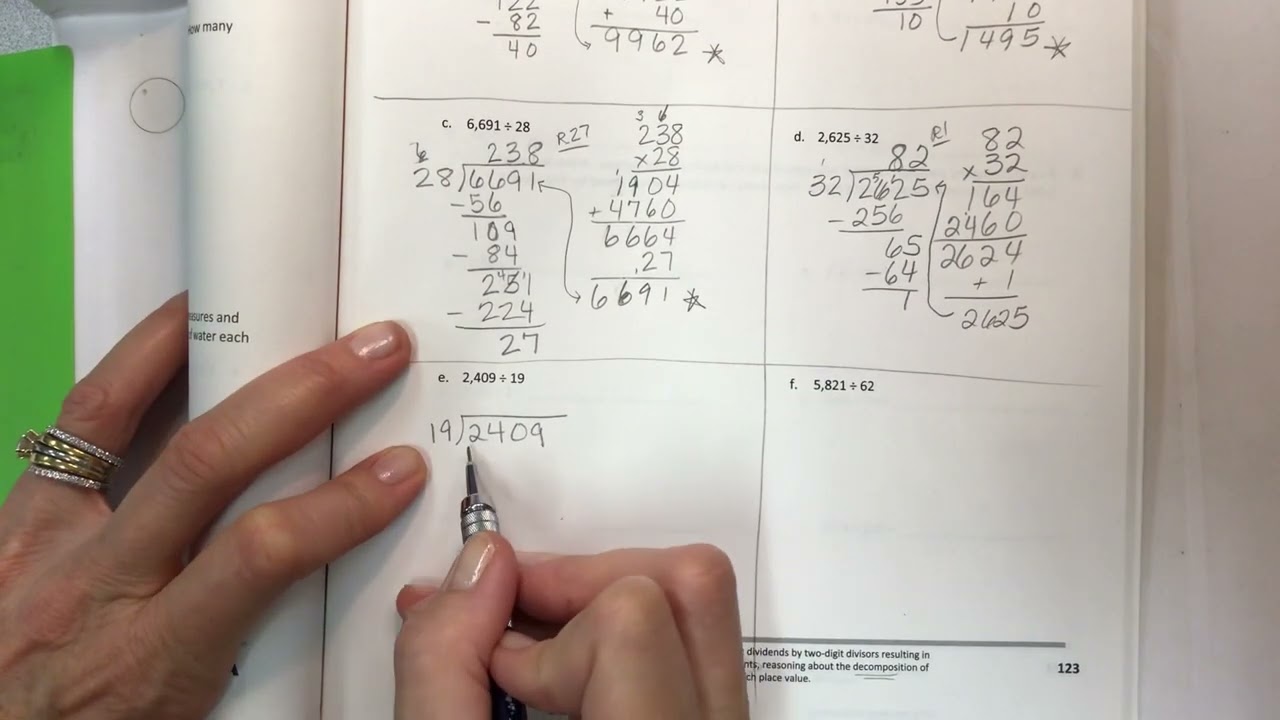 how many
122
- 82
40
+ 40
9962 *
10
10
1495 *
c. 6,691 ÷ 28
R27
238
28)6691
-56
109
- 84
251
- 224
27
3 6
238
x28
1904
+4760
6664
27
6691 *
d. 2,625 ÷ 32
R1
82
32)2625
-256
65
-64
1
82
x32
164
2460
2624
+ 1
2625
asures and
of water each
e. 2,409 ÷ 19
19)2409
f. 5,821 ÷ 62
dividends by two-digit divisors resulting in
nts, reasoning about the decomposition of
ch place value.
123